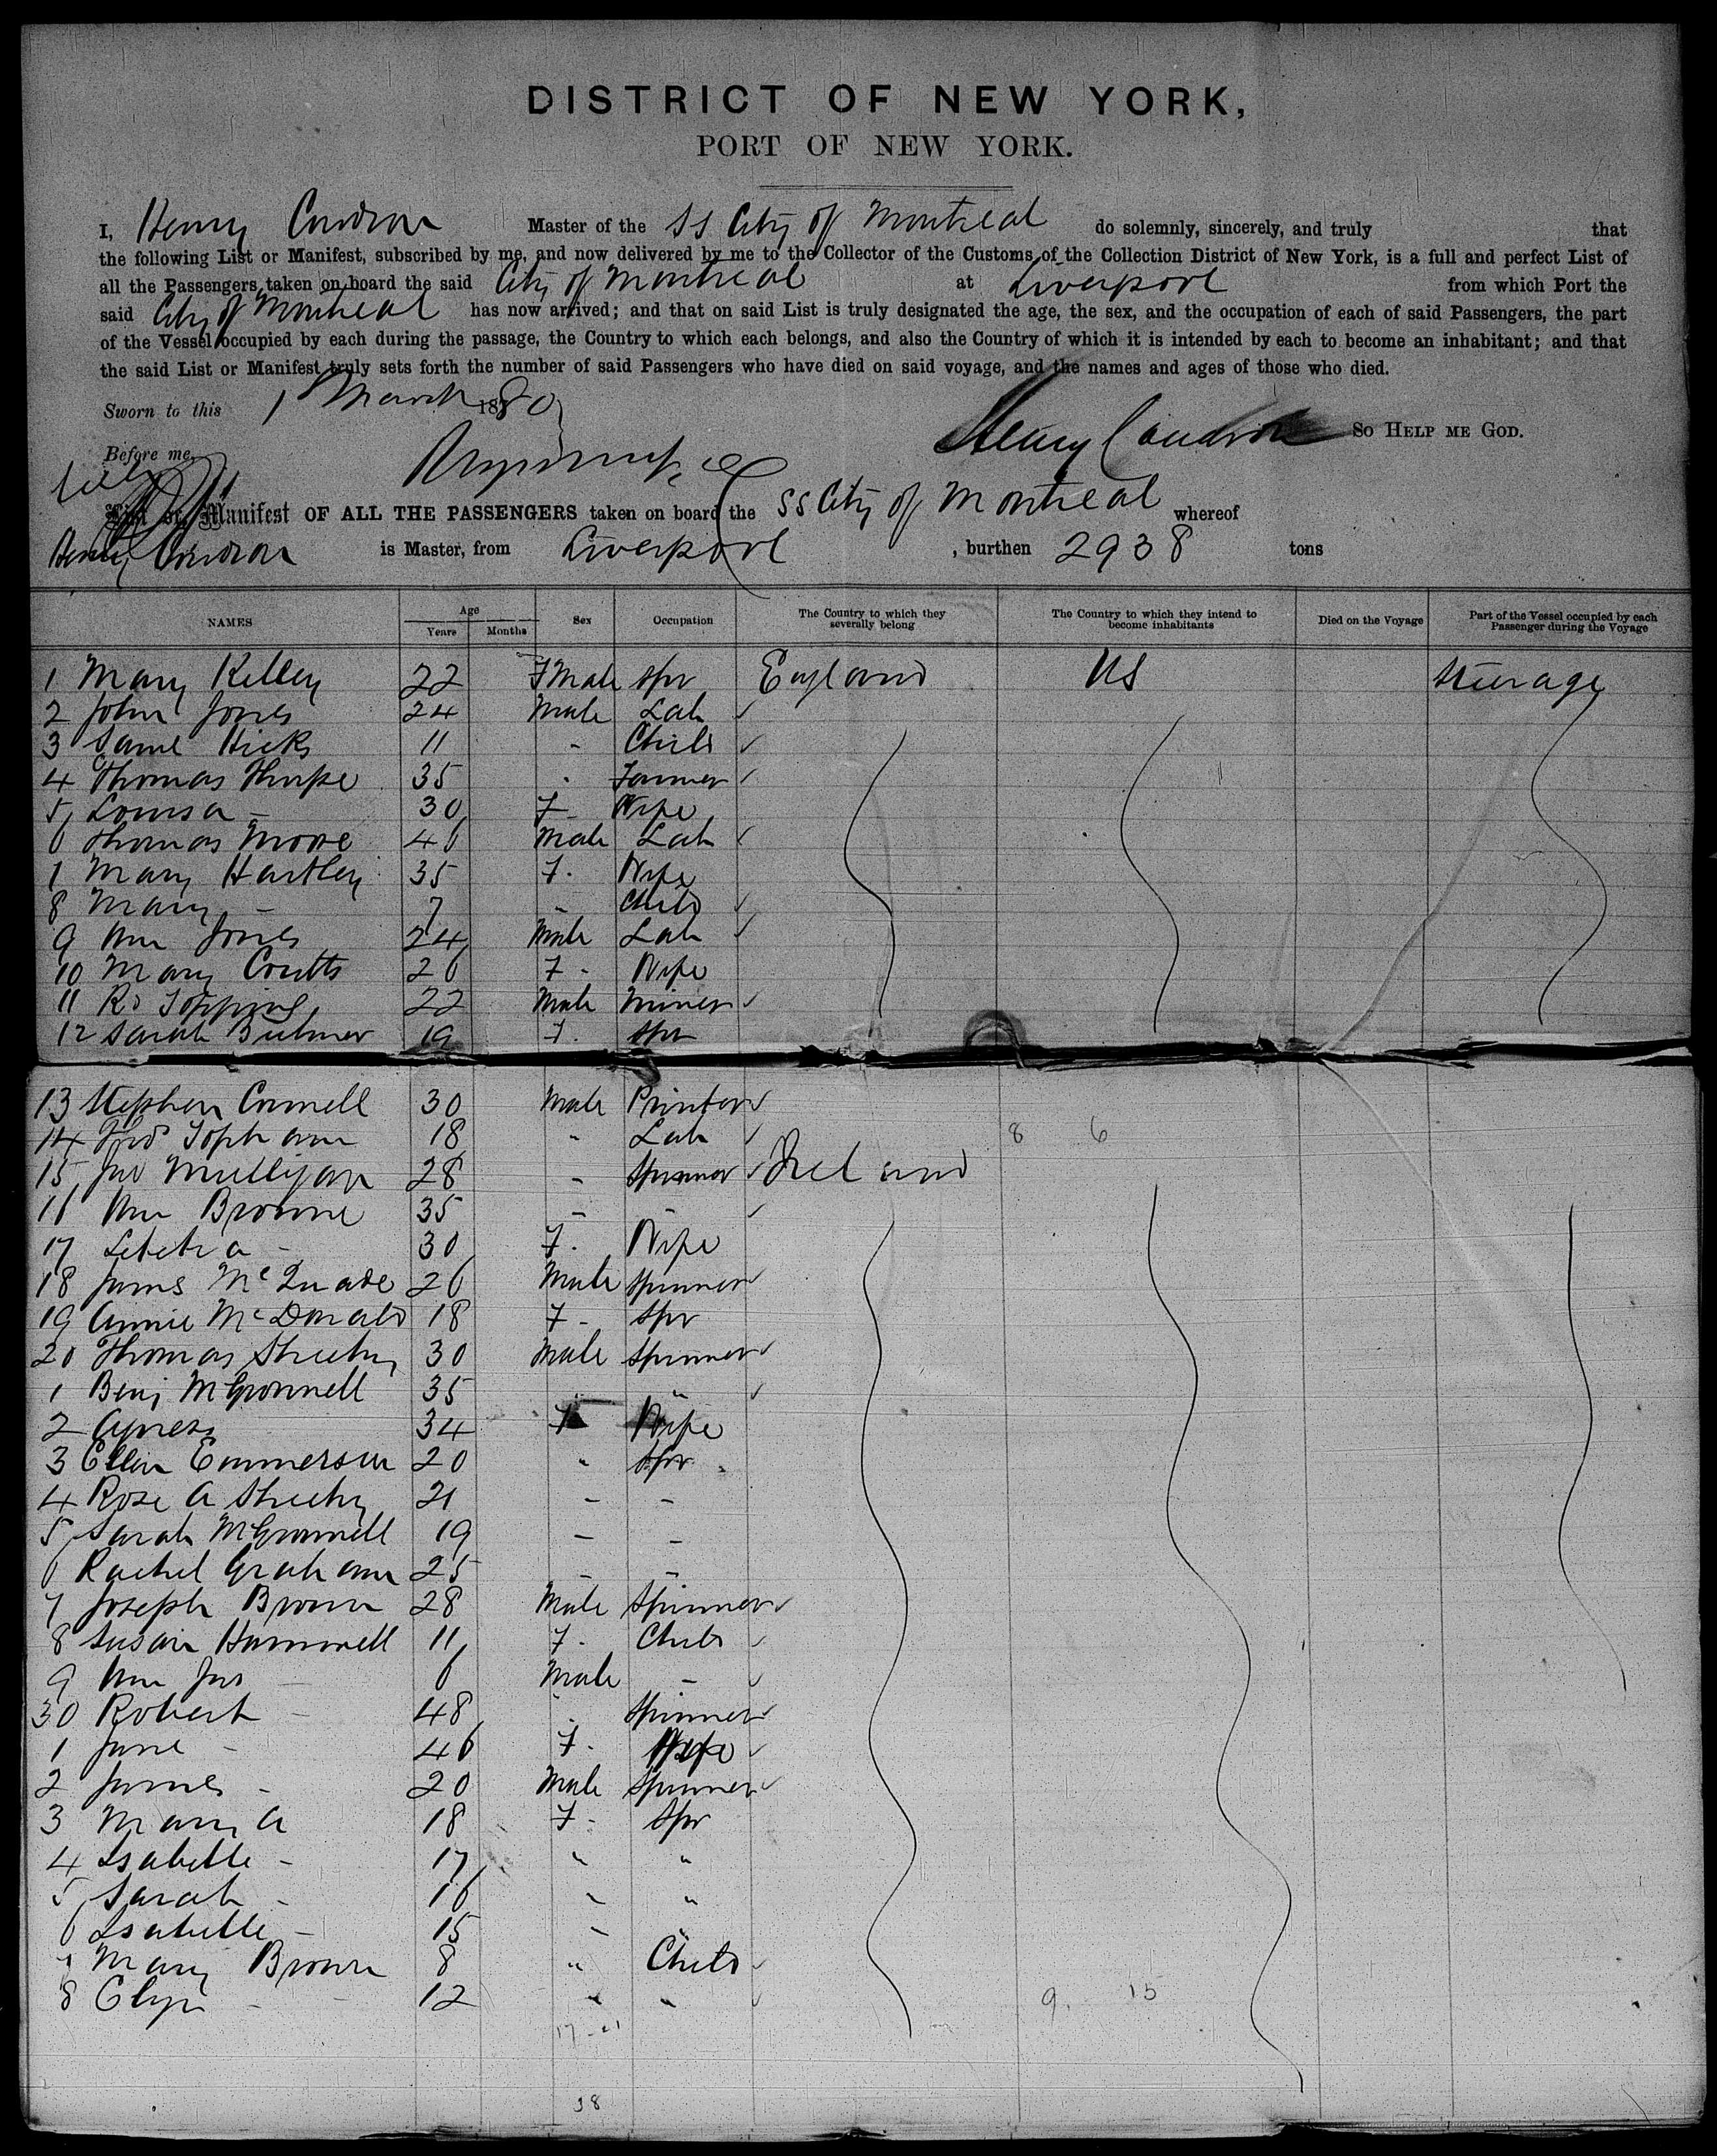 DISTRICT OF NEW YORK,
PORT OF NEW YORK.
I, Henry Condron Master of the SS City of Montreal do solemnly, sincerely, and truly that
the following List or Manifest, subscribed by me, and now delivered by me to the Collector of the Customs of the Collection District of New York, is a full and perfect List of
all the Passengers taken on board the said City of Montreal at Liverpool from which Port the
said City of Montreal has now arrived; and that on said List is truly designated the age, the sex, and the occupation of each of said Passengers, the part
of the Vessel occupied by each during the passage, the Country to which each belongs, and also the Country of which it is intended by each to become an inhabitant; and that
the said List or Manifest truly sets forth the number of said Passengers who have died on said voyage, and the names and ages of those who died.
Sworn to this 1 March 1880
Henry Condron SO HELP ME GOD.
Before me,
List or Manifest OF ALL THE PASSENGERS taken on board the SS City of Montreal whereof
Henry Condron is Master, from Liverpool, burthen 2938 tons
NAMES Age Years Months Sex Occupation The Country to which they severally belong The Country to which they intend to become inhabitants Died on the Voyage Part of the Vessel occupied by each Passenger during the Voyage
1 Mary Kelley 22 FMale Spr England US Steerage
2 John Jones 24 Male Lab ✓
3 Saml Hicks 11 " Child ✓
4 Thomas Thorpe 35 " Farmer ✓
5 Louisa - 30 F Wife
6 Thomas Moore 46 Male Lab ✓
7 Mary Hartley 35 F. Wife
8 Mary - 7 - Child ✓
9 Wm Jones 24 Male Lab ✓
10 Mary Coutts 26 F - Wife
11 Rd Topping 22 Male Miner ✓
12 Sarah Bulmer 19 F. Spr
13 Stephen Connell 30 Male Printer ✓
14 Fred Topham 18 " Lab ✓ 8 6
15 Jno Mulligan 28 - Spinner ✓ Ireland
16 Wm Browne 35 - - ✓
17 Letetia - 30 F. Wife
18 James McQuade 26 Male Spinner ✓
19 Annie McDonald 18 F - Spr
20 Thomas Sheehy 30 Male Spinner ✓
1 Benj McGronnell 35 " " ✓
2 Agness 34 F Wife
3 Ellen Emmerson 20 " Spr
4 Rose A Sheehy 21 - -
5 Sarah McGronnell 19 - -
6 Rachel Graham 25 - -
7 Joseph Brown 28 Male Spinner ✓
8 Susan Hammell 11 F. Child ✓
9 Wm Jas - 6 Male - ✓
30 Robert - 48 " Spinner ✓
1 Jane - 46 F. Wife ✓
2 James - 20 Male Spinner ✓
3 Mary A 18 F - Spr
4 Isabella - 17 " "
5 Sarah - 16 " "
6 Isabella - 15 " "
7 Mary Brown 8 " Child ✓
8 - 12 " " ✓ 9. 15
17 - 21
38